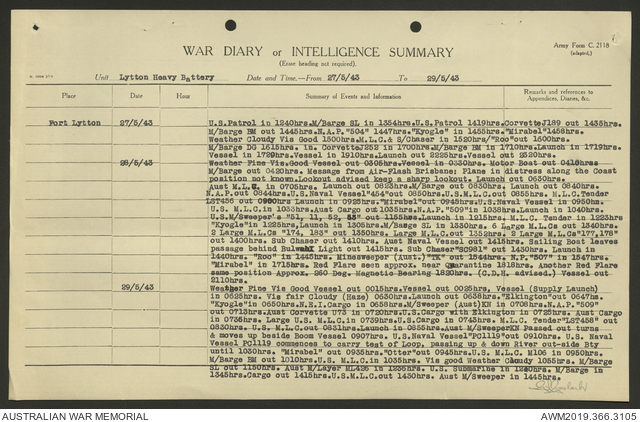 Army Form C. 2118
(adapted.)
WAR DIARY or INTELLIGENCE SUMMARY
(Erase heading not required).
Unit Lytton Heavy Battery Date and Time.—From 27/5/43 To 29/5/43
Place Date Hour Summary of Events and Information Remarks and references to Appendices, Diaries, &c.
Fort Lytton 27/5/43 U.S.Patrol in 1240hrs.M/Barge SL in 1354hrs.U.S.Patrol 1419hrs.CorvetteJ189 out 1435hrs.
M/Barge BM out 1445hrs.N.A.P."504" 1447hrs."Kyogle" in 1455hrs."Mirabel"1458hrs.
Weather Cloudy Vis Good 1500hrs.M.L.C.& S/Chaser in 1520hrs/"Roo"out 1600hrs.
M/Barge DG 1615hrs. in. CorvetteJ252 in 1700hrs.M/Barge BM in 1710hrs.Launch in 1719hrs.
Vessel in 1729hrs.Vessel in 1910hrs.Launch out 2225hrs.Vessel out 2320hrs.
28/5/43 Weather Fine Vis.Good Vessel out 0305hrs.Vessel in 0330hrs. Motor Boat out 0410hrs
M/Barge out 0420hrs. Message from Air-Flash Brisbane; Plane in distress along the Coast
position not known.Lookout advised keep a sharp lookout. Launch out 0630hrs.
Aust M.L. in 0705hrs. Launch out 0823hrs.M/Barge out 0830hrs. Launch out 0840hrs.
N.A.P.out 0844hrs.U.S.Naval Vessel"454"out 0850hrs.U.S.M.L.C.out 0855hrs. M.L.C.Tender
LST456 out 0900hrs Launch in 0925hrs."Mirabel"out 0945hrs.U.S.Naval Vessel in 0950hrs.
U.S. M.L.C.in 1033hrs.Aust Cargo out 1035hrs.N.A.P."509"in 1038hrs.Launch in 1040hrs.
U.S.M/Sweeper's "51, 11, 52, 53" out 1155hrs.Launch in 1215hrs. M.L.C. Tender in 1223hrs
"Kyogle"in 1225hrs,Launch in 1305hrs.M/Barge SL in 1330hrs. 6 Large M.L.Cs out 1340hrs.
2 Large M.L.Cs "174, 183" out 1350hrs. Large M.L.C.out 1352hrs. 2 Large M.L.Cs"177,178"
out 1400hrs. Sub Chaser out 1410hrs. Aust Naval Vessel out 1415hrs. Sailing Boat leaves
passage behind Bulwark Light out 1415hrs. Sub Chaser"SC981" out 1430hrs. Launch in
1440hrs. "Roo" in 1445hrs. Minesweeper (Aust.)"TK" out 1544hrs. N.P."507" in 1547hrs.
"Mirabel" in 1715hrs. Red Flare seen approx. near Quarantine 1818hrs. Another Red Flare
same position Approx. 260 Deg. Magnetic Bearing 1820hrs. (C.D.H. advised.) Vessel out
2110hrs.
29/5/43 Weather Fine Vis Good Vessel out 0015hrs.Vessel out 0025hrs. Vessel (Supply Launch)
in 0625hrs. Vis fair Cloudy (Haze) 0630hrs.Launch out 0638hrs. "Elkington"out 0647hs.
"Kyogle"in 0650hrs.N.E.I.Cargo in 0658hrs. M/Sweeper (Aust)KH in 0703hrs.N.A.P."509"
out 0713hrs.Aust Corvette U73 in 0720hrs.U.S.Cargo with Elkington in 0725hrs. Aust Cargo
in 0735hrs. Large U.S. M.L.C.in 0739hrs.U.S.Cargo in 0743hrs. M.L.C. Tender"LST458" out
0830hrs. U.S. M.L.C.out 0831hrs.Launch in 0855hrs. Aust M/SweeperKN Passed out turns
& moves up beside Boom Vessel 0907hrs. U.S.Naval Vessel"PC1119"out 0910hrs. U.S. Naval
Vessel PC1119 commences to carry test of Loop. passing up & down River out-side Bty
until 1030hrs. "Mirabel" out 0935hrs."Otter"out 0945hrs.U.S. M.L.C. M106 in 0950hrs.
M/Barge BM out 1010hrs.U.S. M.L.C.in 1035hrs. Vis good Weather Cloudy 1055hrs. M/Barge
SL out 1150hrs. Aust M/Layer ML425 in 1235hrs. U.S. Submarine in 1240hrs. M/Barge in
1345hrs.Cargo out 1415hrs.U.S.M.L.C.out 1430hrs. Aust M/Sweeper in 1445hrs.
AUSTRALIAN WAR MEMORIAL AWM2019.366.3105